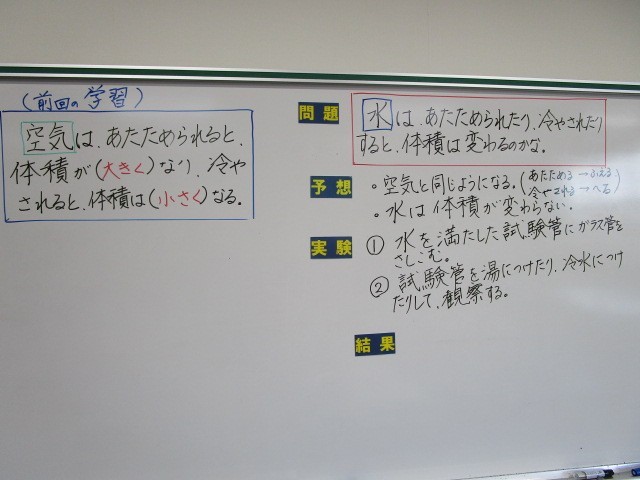 (前回の学習)
空気は、あたためられると、
体積が(大きく)なり、冷や
されると、体積は(小さく)なる。
問題
水は、あたためられたり、冷やされたり
すると、体積は変わるのかな。
予想
・空気と同じようになる。(あたためる→ふえる
冷やされる→へる)
・水は体積が変わらない。
実験
① 水を満たした試験管にガラス管を
さしこむ。
② 試験管を湯につけたり、冷水につけ
たりして、観察する。
結果